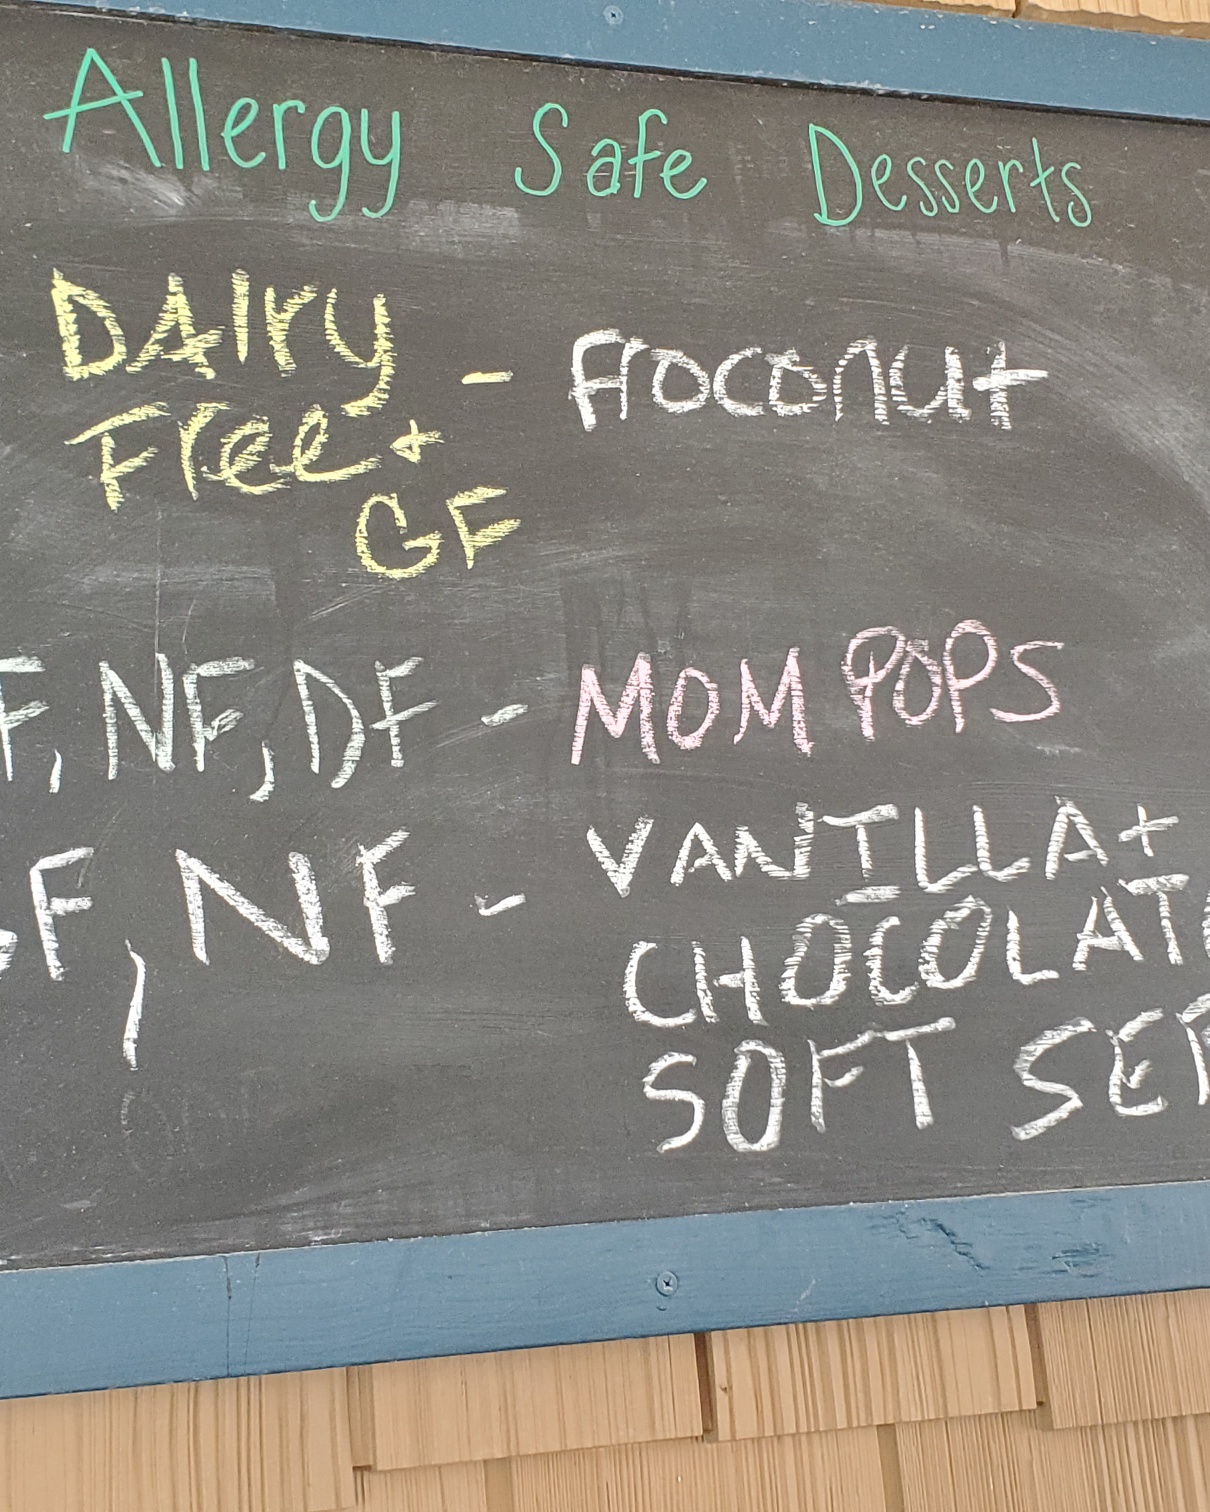 Allergy Safe Desserts
DAIry
Free +
GF
- Froconut
F, NF, DF - MOM POPS
GF, NF - VANILLA +
CHOCOLATE
SOFT SER